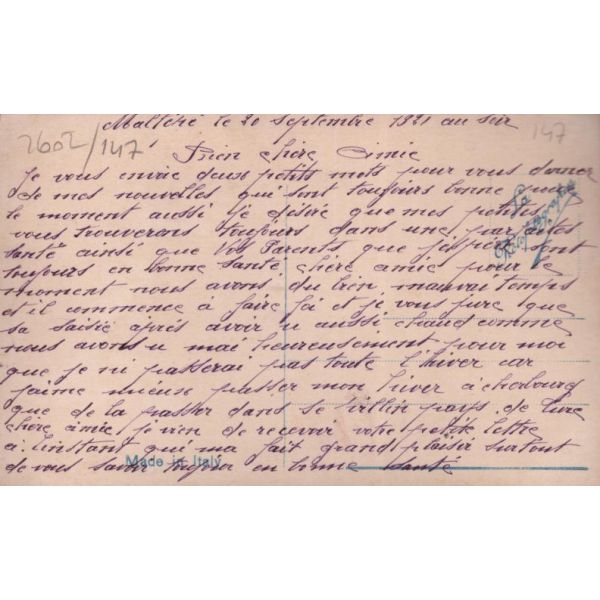 le 20 Septembre 1921 au soir
2602/147
147
Bien chère Amie
Je vous envoie deux petits mots pour vous donner
de mes nouvelles qui sont toujours bonne pour
le moment aussi je désire que mes petites
vous trouverans toujours dans une parfaites
santé ainsi que Vos Parents que j'espère sont
toujours en bonne santé, chère amie pour le
moment nous avons du bien mauvai temps
et il commence à faire foi et je vous jure que
sa saisie après avoir u aussi chaud comme
nous avons u mai heureusement pour moi
que je ni passerai pas toute l'hiver car
j'aime mieuse passer mon hiver a cherbourg
que de la passer dans se villin pays. de
chère amie je vien de recevoir votre petite lettre
a l'instant qui ma fait grand plaisir surtout
de vous savoir toujour en bonne santé
Made in Italy